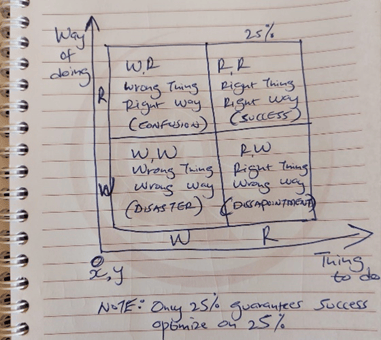 Way
of
doing
25%
R
W,R
Wrong Thing
Right Way
(CONFUSION)
R,R
Right Thing
Right Way
(SUCCESS)
W
W,W
Wrong Thing
Wrong Way
(DISASTER)
R,W
Right Thing
Wrong Way
(DISSAPOINTMENT)
W R
x,y
Thing
to do
NOTE: Only 25% guarantees success
optimize on 25%